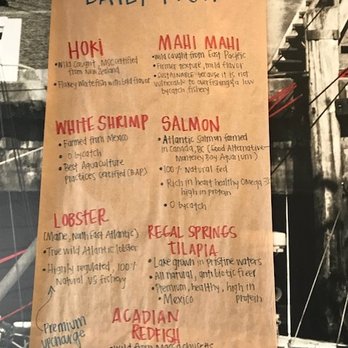 DAILY
HOKI
• Wild Caught, MSC certified
from New Zealand
• Flakey whitefish with bold flavor
MAHI MAHI
• Wild caught from East Pacific
• Firmer texture, mild flavor
• SUSTAINABLE because it is not
vulnerable to overfishing & low
bycatch fishery
WHITE SHRIMP
• Farmed from Mexico
• 0 bycatch
• Best Aquaculture
Practices Certified (BAP)
SALMON
• Atlantic Salmon farmed
in Canada, BC (Good Alternative-
Monterey Bay Aquarium)
• 100% Natural fed
• Rich in heart healthy Omega 3
high in protein
• 0 bycatch
LOBSTER
(Maine, North East Atlantic)
• True wild Atlantic lobster
• Highly regulated, 100%
Natural US fishery
Premium
upcharge
REGAL SPRINGS
TILAPIA
• Lake grown in pristine waters
• All natural, antibiotic free
• Premium, healthy, high in
protein
• Mexico
ACADIAN
REDFISH